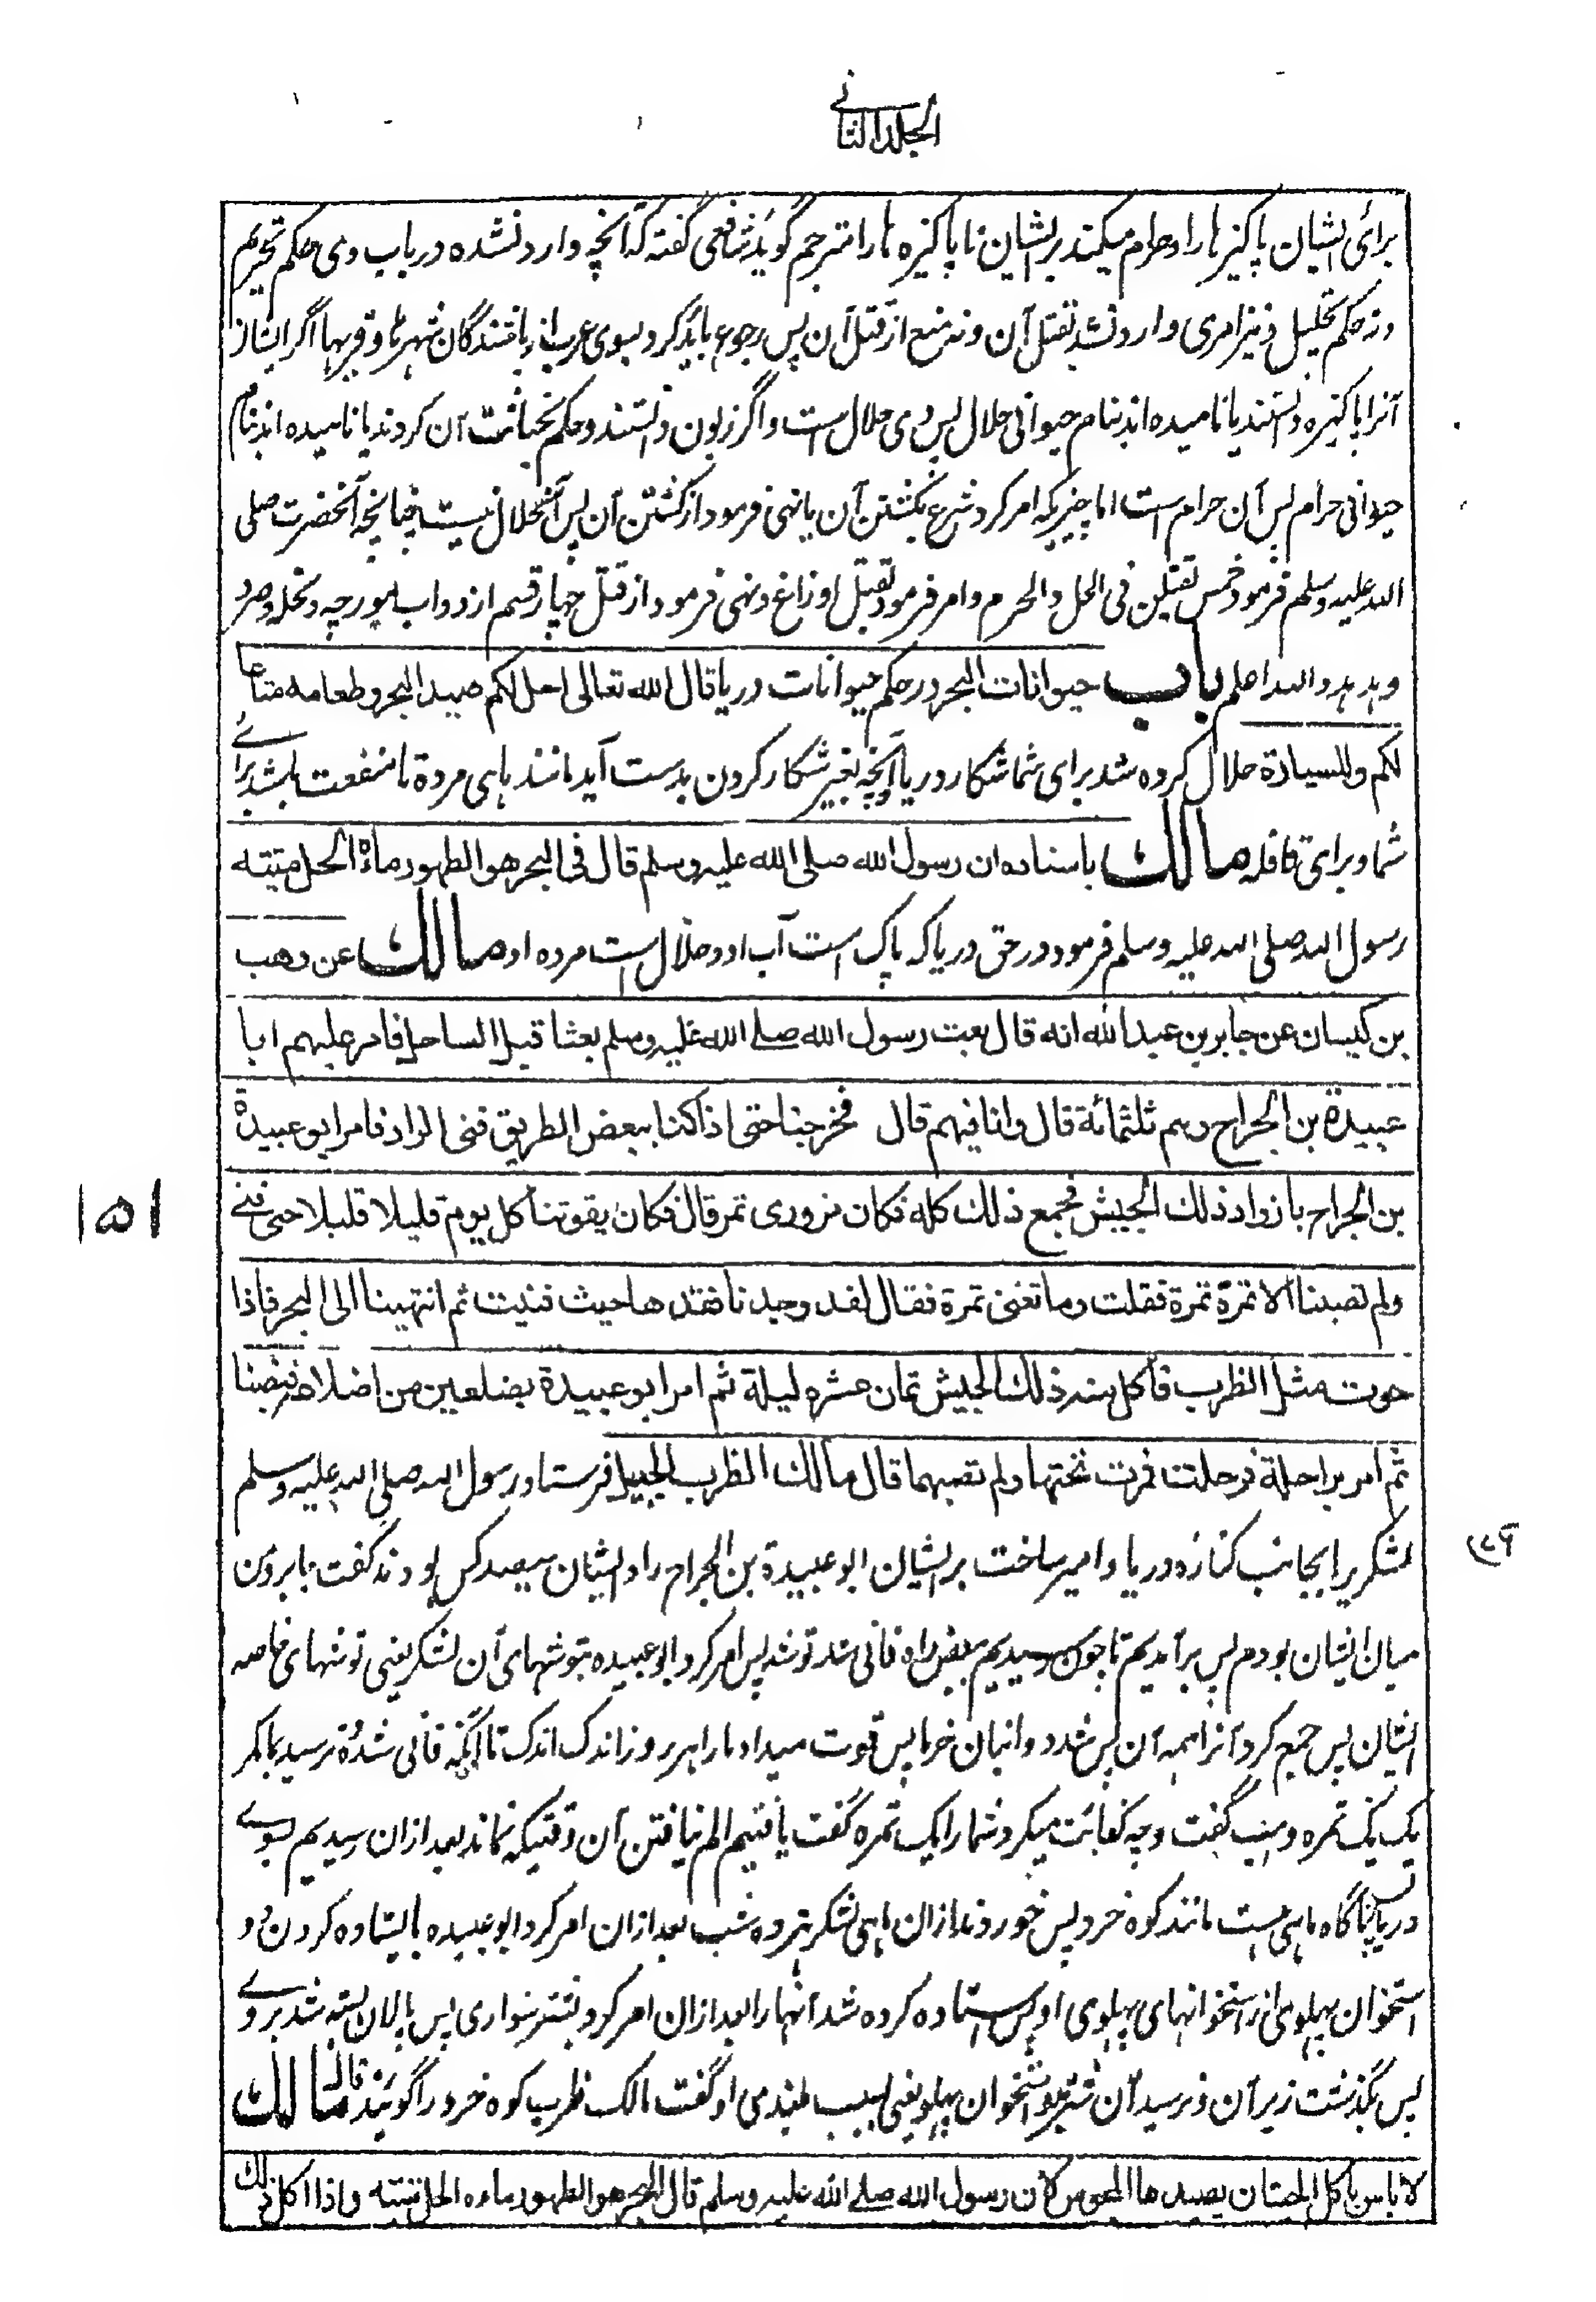 الجلد الثانی
برای ایشان پاکیزها را و حرام میکند بر ایشان ناپاکیزه ها را مترجم گوید شافعی گفته که آنچه وارد نشده در باب وی حکم تحریم
و نه حکم تحلیل و نیز امری وارد نشد بقتل آن و نه منع از قتل آن پس رجوع باید کرد بسوی عرب از باشندگان شهرها و قریها اگر ایشان
آنرا پاکیزه دانستند یا نامیده اند بنام حیوانی حلال پس وی حلال است و اگر زبون دانستند و حکم بخباثت آن کردند یا نامیده اند بنام
حیوانی حرام پس آن حرام است اما چیزیکه امر کرد شرع بکشتن آن یا نهی فرمود از کشتن آن پس آن حلال نیست چنانچه آنحضرت صلی
الله علیه وسلم فرمود خمس یقتلن فی الحل والحرم و امر فرمود بقتل اوزاغ و نهی فرمود از قتل چهار قسم از دواب مورچه و نحل و صرد
و هدهد والله اعلم باب حیوانات البحر در حکم حیوانات دریا قال الله تعالی احل لکم صید البحر و طعامه متاعا
لکم وللسیارة حلال کرده شد برای شما شکار دریا و آنچه بغیر شکار کردن بدست آید مانند ماهی مردة تا منفعت باشد برای
شما و برای قافله مالك باسناده ان رسول الله صلی الله علیه وسلم قال فی البحر هو الطهور ماءه الحل میتته
رسول الله صلی الله علیه وسلم فرمود در حق دریا که پاک است آب او و حلال است مرده او مالك عن وهب
بن کیسان عن جابر بن عبد الله انه قال بعث رسول الله صلے الله علیه وسلم بعثا قبل الساحل فامر علیهم ابا
عبیدة بن الجراح وهم ثلثمائة قال وانا فیهم قال فخرجنا حتی اذا کنا ببعض الطریق فنی الزاد فامر ابو عبیدة
بن الجراح بازواد ذلك الجیش فجمع ذلك کله فکان مزودی تمر قال فکان یقوتنا کل یوم قلیلا قلیلا حتی فنے
ولم تصبنا الا تمرة تمرة فقلت وما تغنی تمرة فقال لقد وجدنا فقدها حیث فنیت ثم انتهینا الی البحر فاذا
حوت مثل الظرب فاکل منه ذلك الجیش ثمان عشرة لیلة ثم امر ابو عبیدة بضلعین من اضلاعه فنصبنا
ثم امر براحلة فرحلت فمرت تحتهما ولم تصبهما قال مالك الظرب الجبیل فرستاد رسول الله صلی الله علیه وسلم
لشکریرا بجانب کنازه دریا و امیر ساخت بر ایشان ابو عبیدة بن الجراح را و ایشان سیصد کس بودند گفت جابر و من
میان ایشان بودم پس برآمدیم تا چون رسیدیم ببعض راه فانی شد توشه پس امر کرد ابو عبیده بتوشهای آن لشکر یعنی توشهای خاصه
ایشان پس جمع کرد آنرا همه آن پس شد دو انبان خرما پس قوت میداد ما را هر روز اندک اندک تا آنکه فانی شد و نرسید بما مگر
یک یک تمره وهب گفت و چه کفایت میکرد شما را یک تمره گفت یافتیم الم نیافتن آن وقتیکه نماند بعد ازان رسیدیم بسوے
دریا پس ناگاه ماهی هست مانند کوه خرد پس خوردند ازان ماهی لشکر هژده شب بعد ازان امر کرد ابو عبیده بایستاده کردن دو
استخوان پهلوی از استخوانهای پهلوی او پس استاده کرده شد آنها را بعد ازان امر کرد بشتر سواری پس پالان بسته شد بر وے
پس بگذشت زیر آن و نرسید آن شتر بدو استخوان پهلو یعنی بسبب بلندی او گفت مالک ظرب کوه خرد را گویند قال مالك
لا باس باکل الحیتان یصیدها المجوس لان رسول الله صلے الله علیه وسلم قال البحر هو الطهور ماءه الحل میتته واذا اکل ذلك
۱۵۱